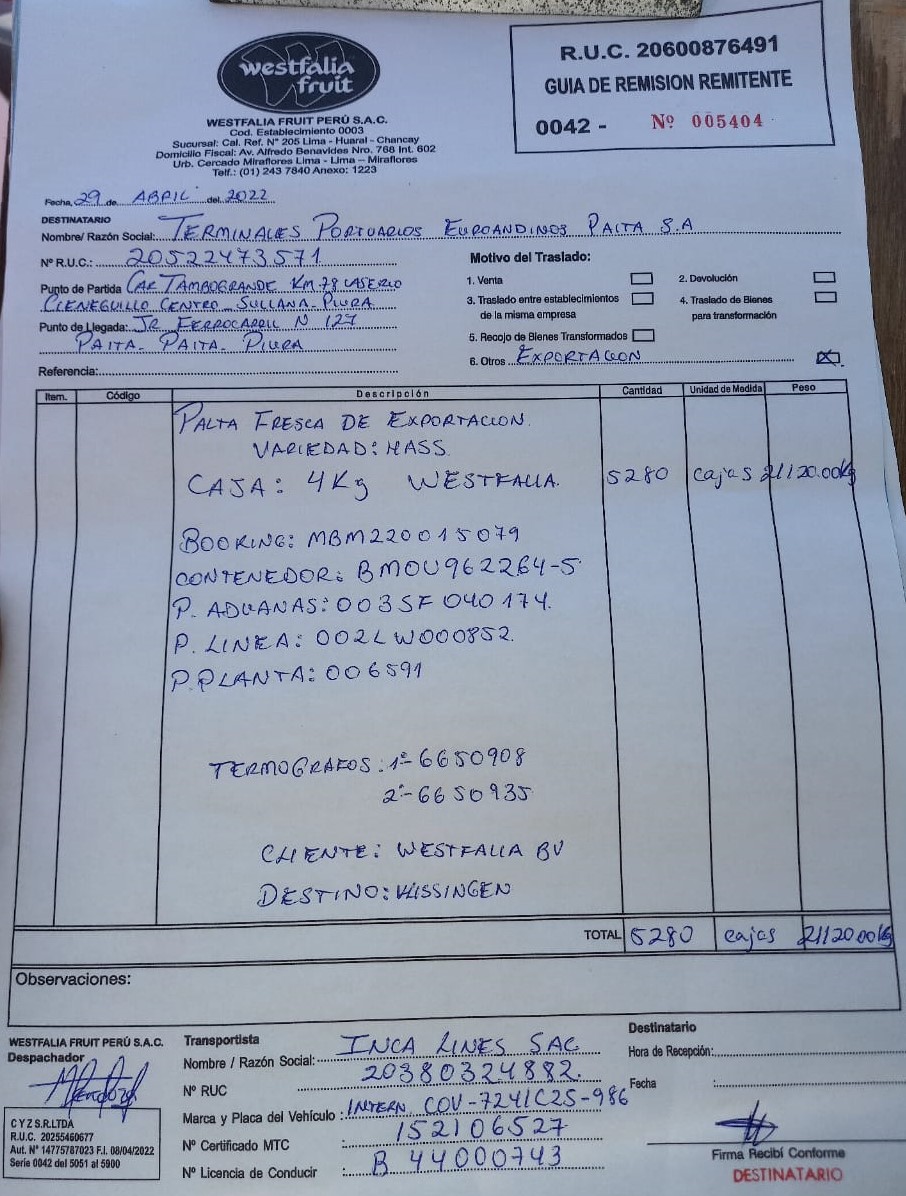 westfalia
fruit
WESTFALIA FRUIT PERÚ S.A.C.
Cod. Establecimiento 0003
Sucursal: Cal. Ref. N° 205 Lima - Huaral - Chancay
Domicilio Fiscal: Av. Alfredo Benavides Nro. 768 Int. 602
Urb. Cercado Miraflores Lima - Lima - Miraflores
Telf.: (01) 243 7840 Anexo: 1223
R.U.C. 20600876491
GUIA DE REMISION REMITENTE
0042 - Nº 005404
Fecha, 29 de ABRIL del 2022
DESTINATARIO
Nombre/ Razón Social: TERMINALES PORTUARIOS EUROANDINOS PAITA S.A
Nº R.U.C.: 20522473571
Punto de Partida CAR TAMBOGRANDE KM.78 CASERIO
CIENEGUILLO CENTRO - SULLANA - PIURA
Punto de Llegada: JR FERROCARRIL N 127
PAITA - PAITA - PIURA
Referencia:
Motivo del Traslado:
1. Venta
2. Devolución
3. Traslado entre establecimientos
de la misma empresa
4. Traslado de Bienes
para transformación
5. Recojo de Bienes Transformados
6. Otros EXPORTACION
Item. Código Descripción Cantidad Unidad de Medida Peso
PALTA FRESCA DE EXPORTACION.
VARIEDAD: HASS.
CAJA: 4Kg WESTFALIA. 5280 cajas 21120.00Kg
BOOKING: MBM220015079
CONTENEDOR: BMOU962264-5
P. ADUANAS: 003SF040174.
P. LINEA: 002LW000852.
P. PLANTA: 006591
TERMOGRAFOS: 1º- 6650908
2º- 6650935
CLIENTE: WESTFALIA BV
DESTINO: VLISSINGEN
TOTAL 5280 cajas 21120.00Kg
Observaciones:
WESTFALIA FRUIT PERÚ S.A.C.
Despachador
C Y Z S.R.LTDA
R.U.C. 20255460677
Aut. N° 14775787023 F.I. 08/04/2022
Serie 0042 del 5051 al 5900
Transportista
Nombre / Razón Social: INCA LINES SAC
Nº RUC 20380324882.
Marca y Placa del Vehículo: INTERN. COV-724/C2S-986
Nº Certificado MTC : 152106527
Nº Licencia de Conducir : B 44000743
Destinatario
Hora de Recepción:
Fecha :
Firma Recibí Conforme
DESTINATARIO